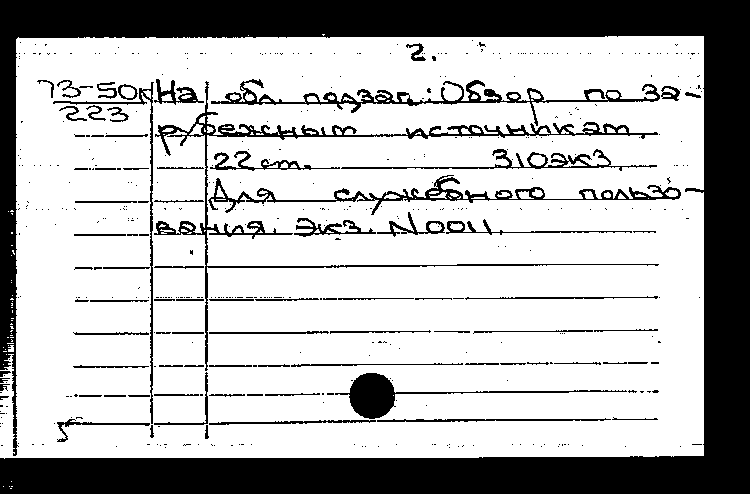 2.
73-50к На обл. подзаг.: Обзор по за-
223
рубежным источникам.
22 см. 310экз.
Для служебного пользо-
вания. Экз. N 0011.
5